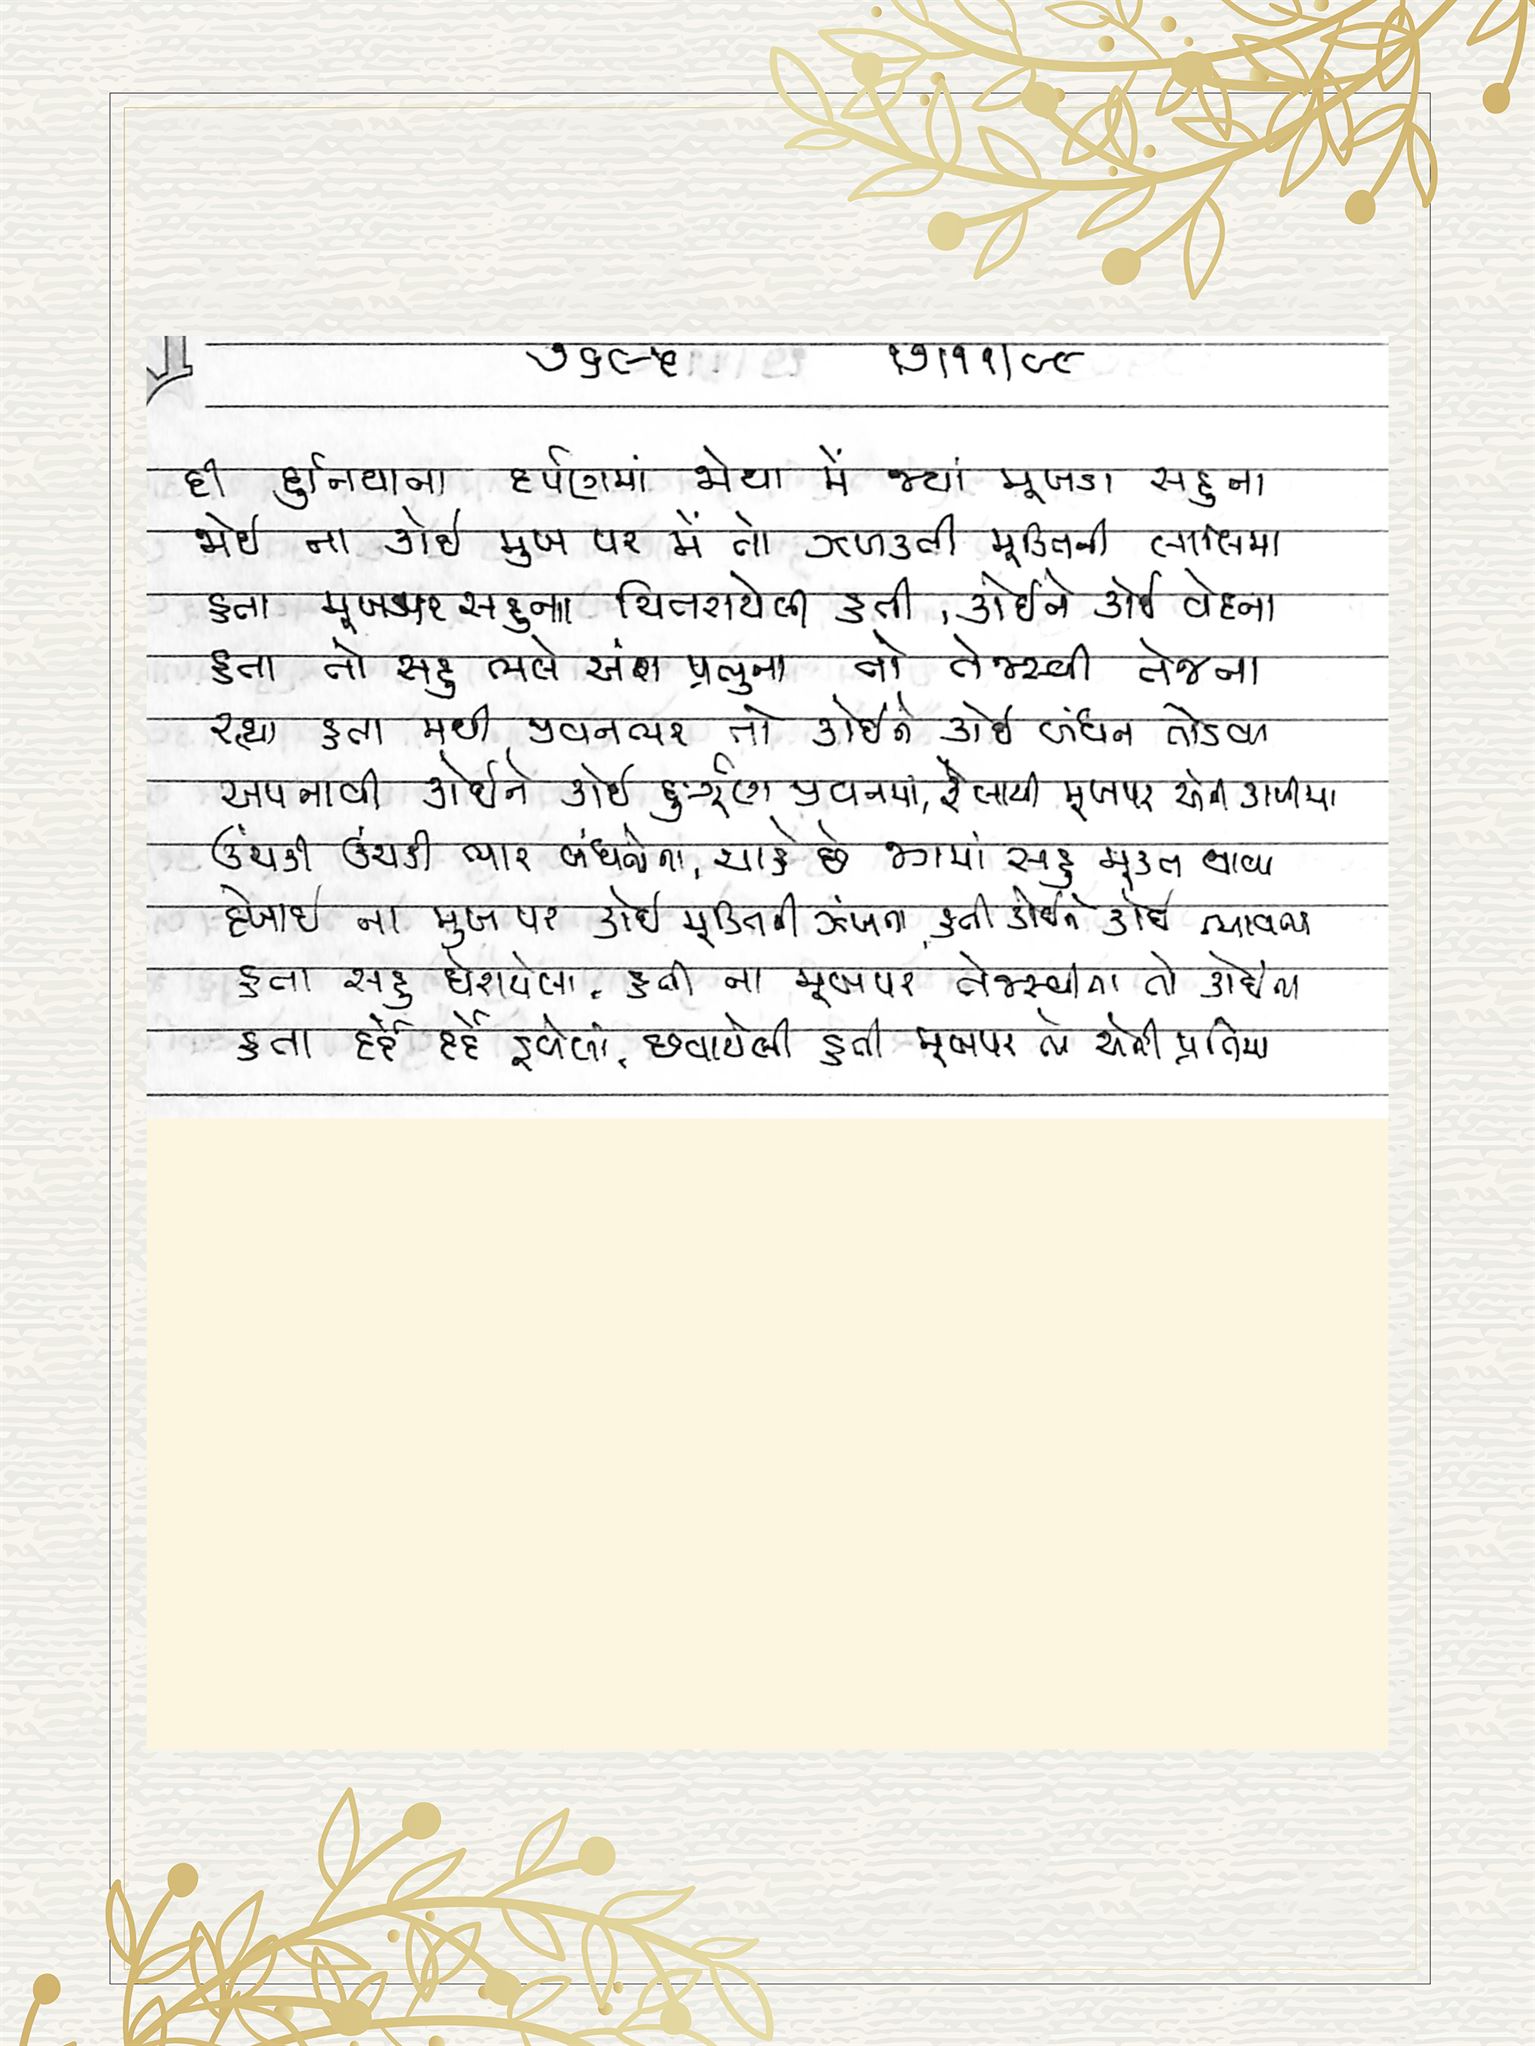 ૭૬૯-૫ ૧૭/૧૧/૦૯
દી દુનિયાના દર્પણમાં જોયા મેં જ્યાં મૂખડા સહુના
જોઈ ના કોઈ મુખ પર મેં તો ઝળકતી મૂક્તિની લાલિમા
હતા મૂખડાપર સહુના ચિતરાયેલી હતી, કોઈને કોઈ વેદના
હતા તો સહુ ભલે અંશ પ્રભુના તો તેજસ્વી તેજના
રહ્યા હતા મથી જીવનભર તો કોઈને કોઈ બંધન તોડવા
અપનાવી કોઈને કોઈ દુર્ગુણ જીવનમાં, ફેલાયી મૂખપર એની કાળીમા
ઉંચકી ઉંચકી ભાર બંધનોના, ચાહે છે જગમાં સહુ મૂક્ત થાવા
દેખાઈ ના મુખ પર કોઈ મૂક્તિની ઝંખના, હતી કોઈને કોઈ ભાવના
હતા સહુ ઘેરાયેલા, હતી ના મૂખપર તેજસ્વીતા તો કોઈના
હતા દર્દે દર્દે ડૂબેલાં, છવાયેલી હતી મૂખપર તો એની પ્રતિમા